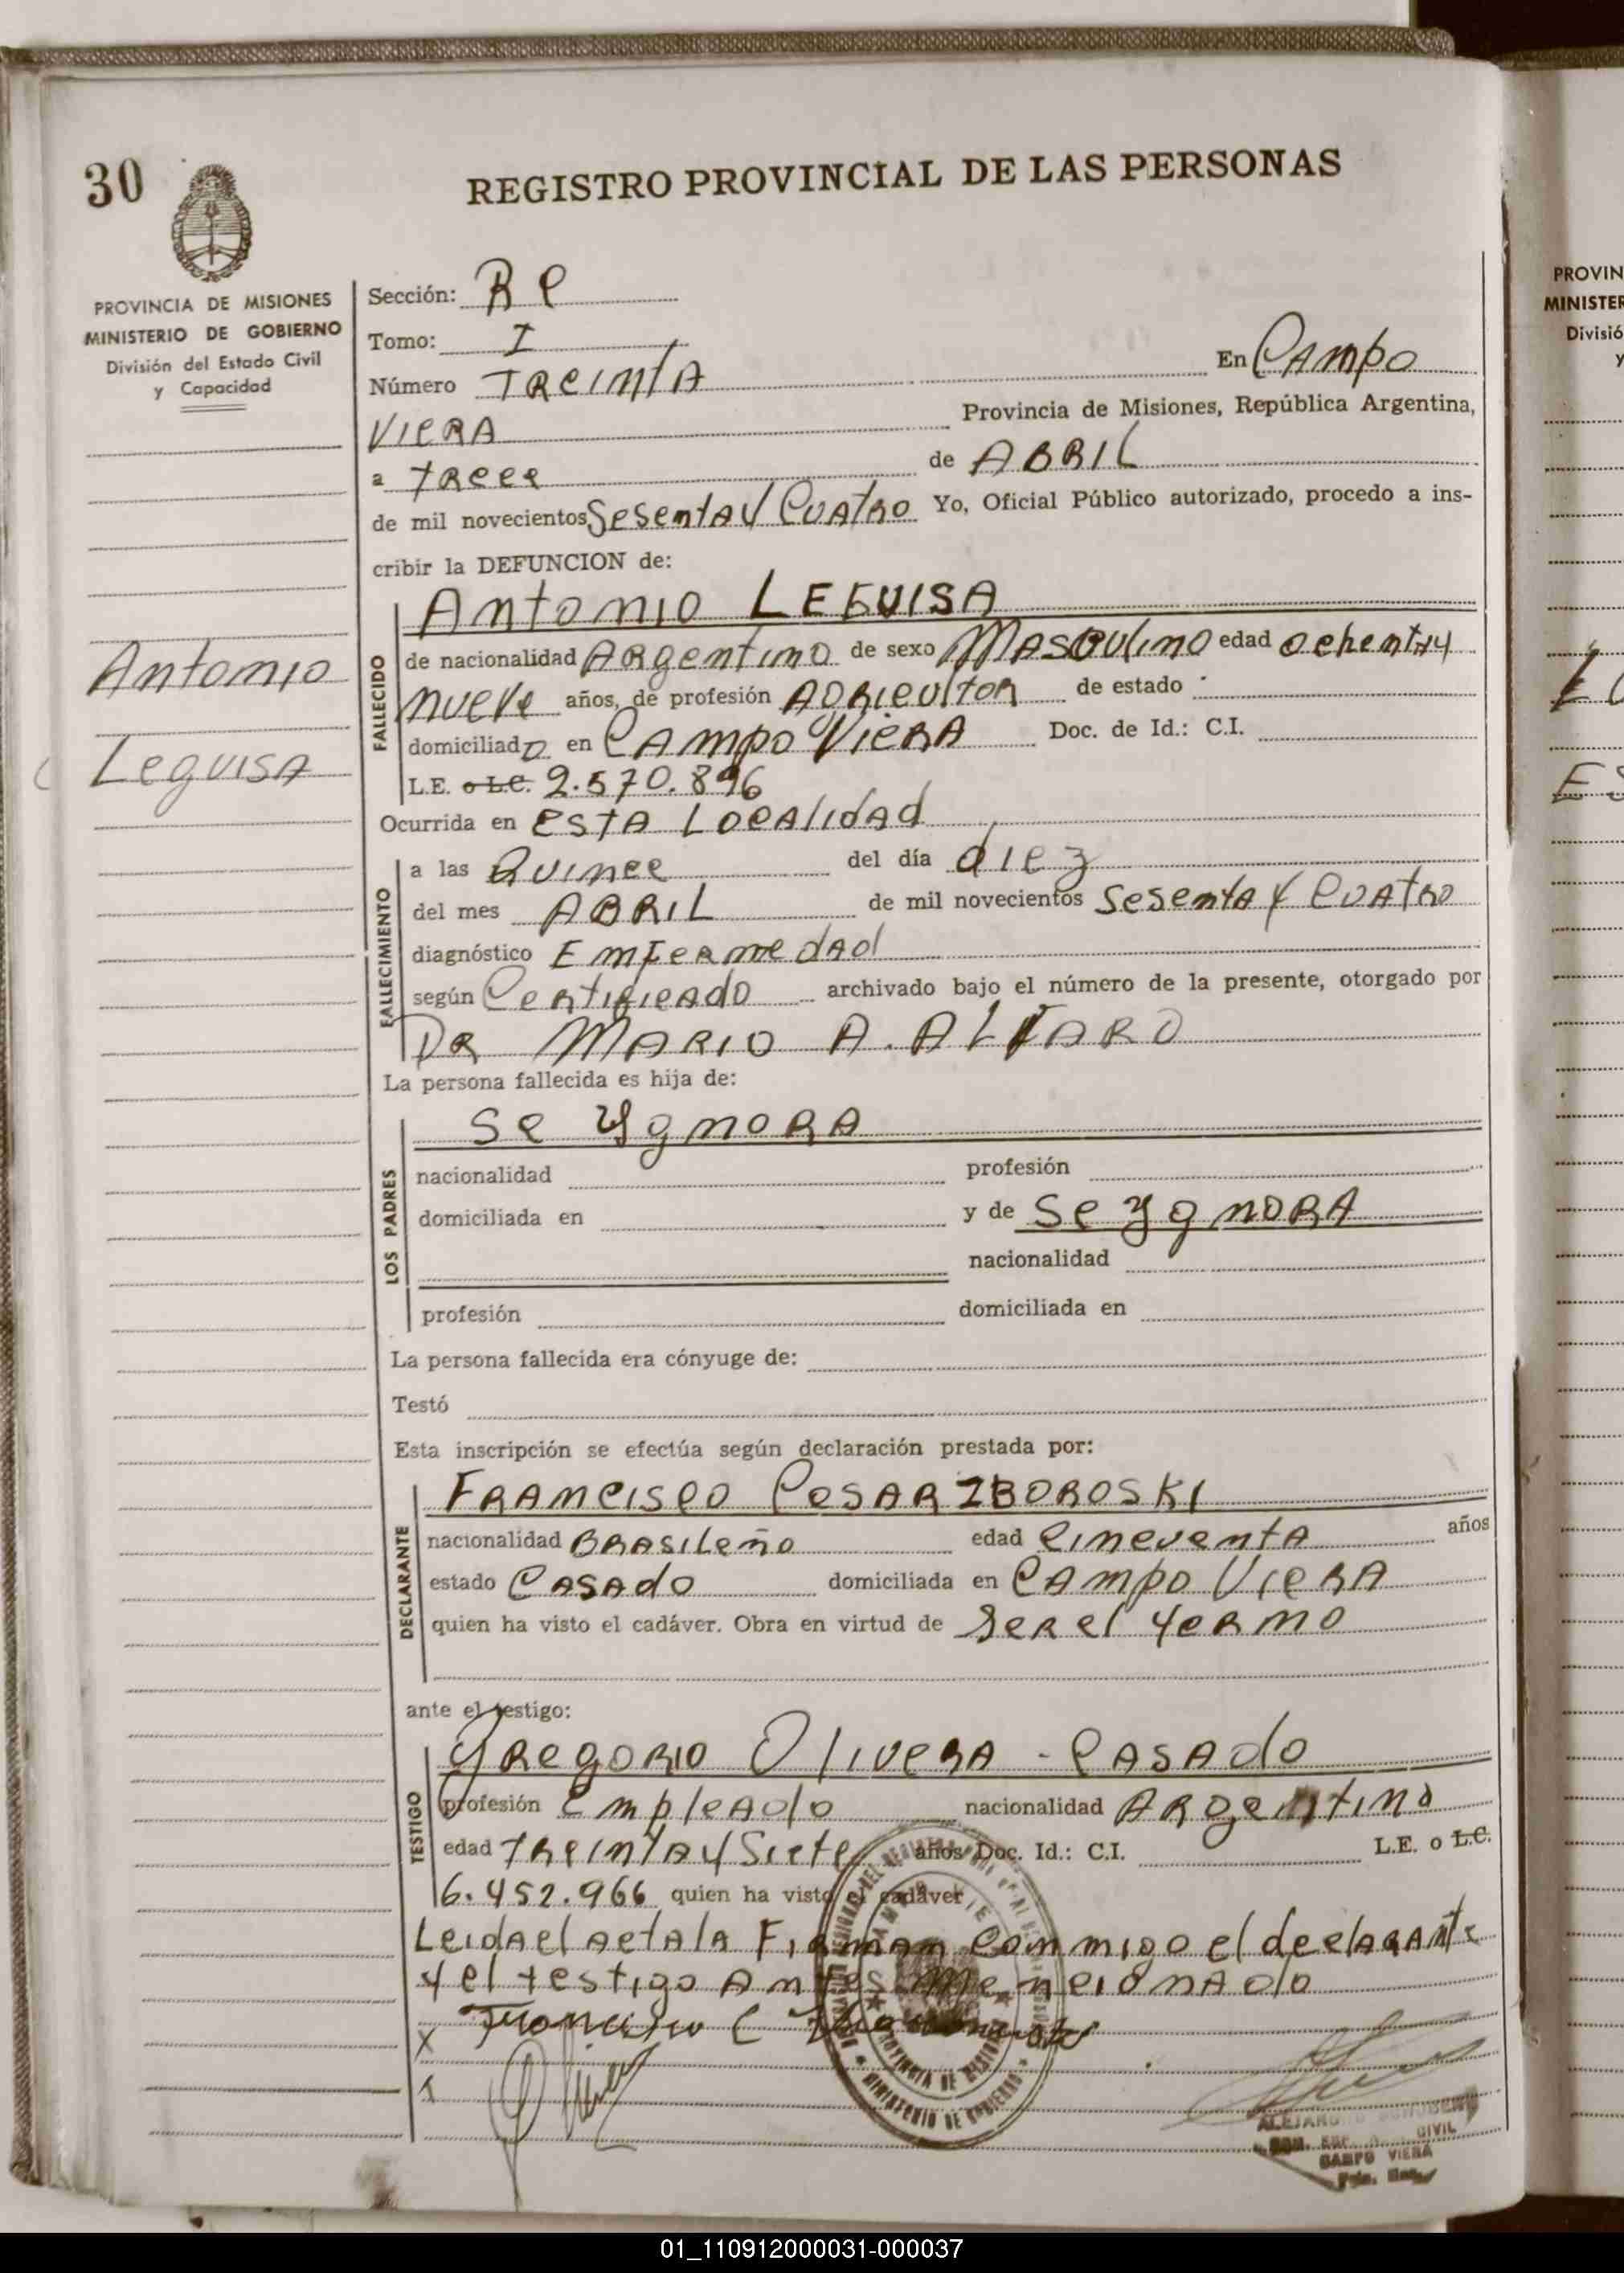 30
REGISTRO PROVINCIAL DE LAS PERSONAS
PROVINCIA DE MISIONES
MINISTERIO DE GOBIERNO
División del Estado Civil
y Capacidad
Sección: Re
Tomo: I
Número TReintA En CAmpo
VieRA Provincia de Misiones, República Argentina,
a TRece de ABRIL
de mil novecientos Sesenta y CuAtRo Yo, Oficial Público autorizado, procedo a ins-
cribir la DEFUNCION de:
Antonio LEGUISA
Antonio
Leguisa
FALLECIDO
de nacionalidad ARgentino de sexo MAsculino edad ochentAy
nueve años, de profesión AgRicultoR de estado
domiciliado en CAmpo VieRA Doc. de Id.: C.I.
L.E. o L.C. 2.570.896
Ocurrida en estA LocAlidAd
FALLECIMIENTO
a las Quince del día diez
del mes ABRIL de mil novecientos SesentA y CuAtRo
diagnóstico EnfeRmedAd
según CeRtificAdo archivado bajo el número de la presente, otorgado por
DR MARIO A. ALFARO
La persona fallecida es hija de:
LOS PADRES
Se YgnoRA
nacionalidad profesión
domiciliada en y de Se YgnoRA
nacionalidad
profesión domiciliada en
La persona fallecida era cónyuge de:
Testó
Esta inscripción se efectúa según declaración prestada por:
DECLARANTE
FRAncisco CesAR ZBOROSKI
nacionalidad BRASILeño edad CincuentA años
estado CASAdo domiciliada en CAmpo VieRA
quien ha visto el cadáver. Obra en virtud de SeR el YeRno
ante el testigo:
TESTIGO
GRegoRio OliveRA - CASAdo
profesión EmpleAdo nacionalidad ARgentino
edad TReintA y Siete años Doc. Id.: C.I. L.E. o L.C.
6.452.966 quien ha visto el cadáver
Leida el ActA la FiRman conmigo el declaRAnte
y el testigo Antes MencionAdo
X
CAMPO VIERA